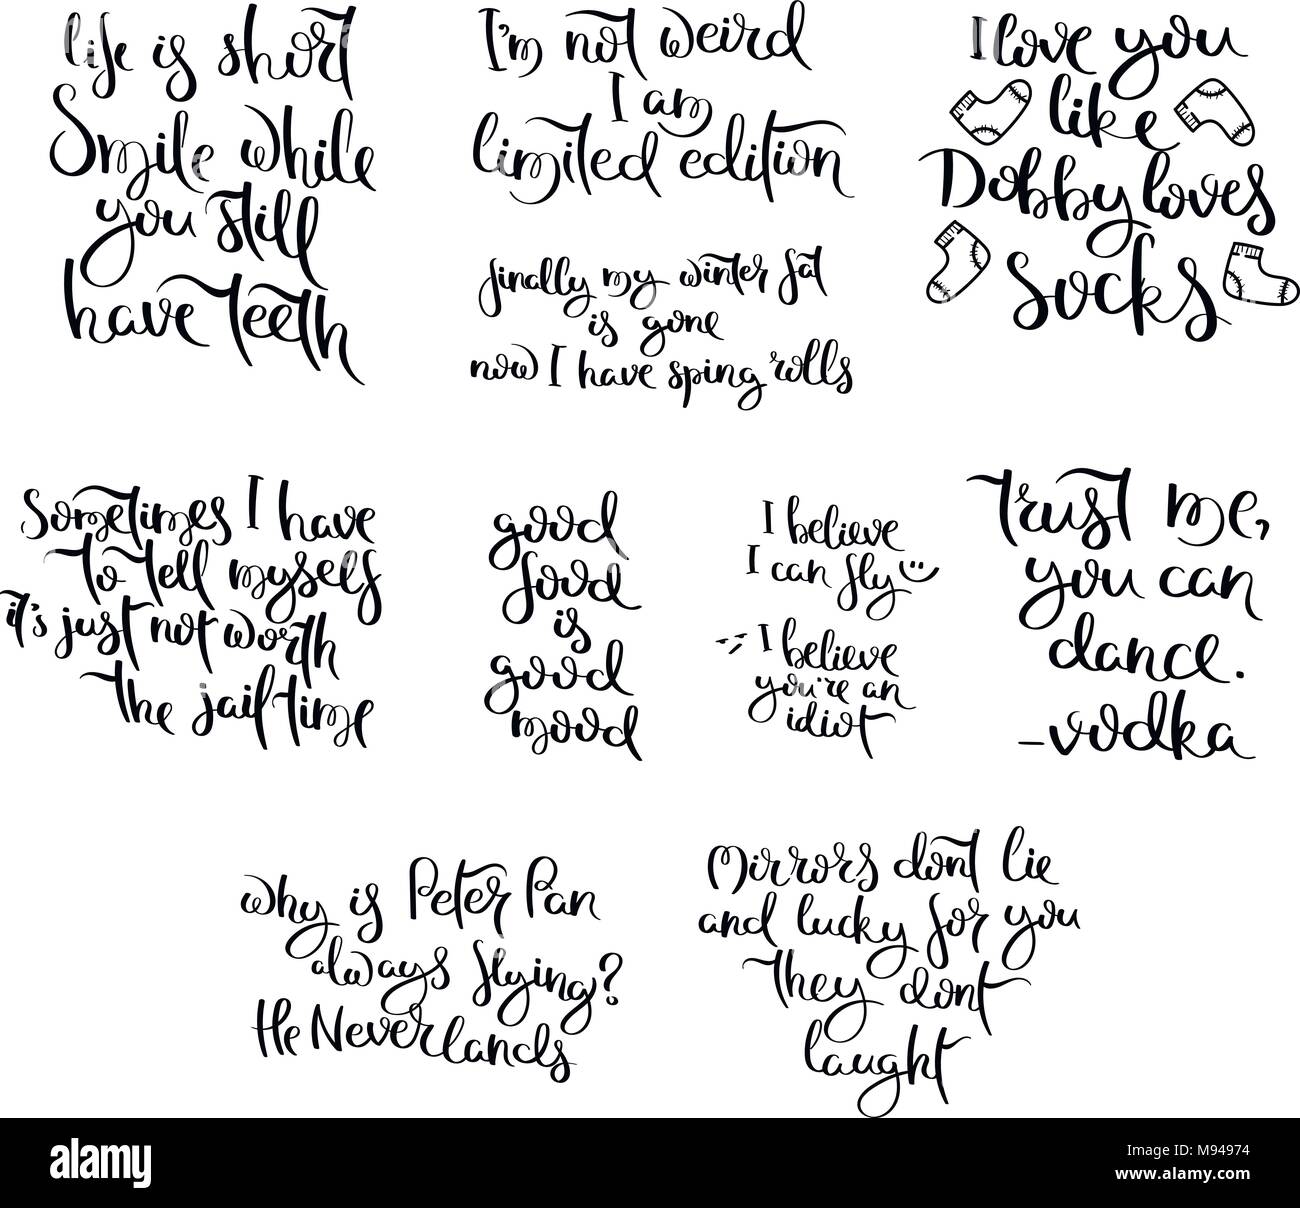 life is short
Smile while
you still
have teeth
I'm not weird
I am
limited edition
finally my winter fat
is gone
now I have sping rolls
I love you
like
Dobby loves
socks
Sometimes I have
to tell myself
it's just not worth
the jail time
good
food
is
good
mood
I believe
I can fly
I believe
you're an
idiot
trust me,
you can
dance.
-vodka
Why is Peter Pan
always flying?
He Neverlands
Mirrors dont lie
and lucky for you
they dont
laught
alamy
Image ID: M94974
www.alamy.com